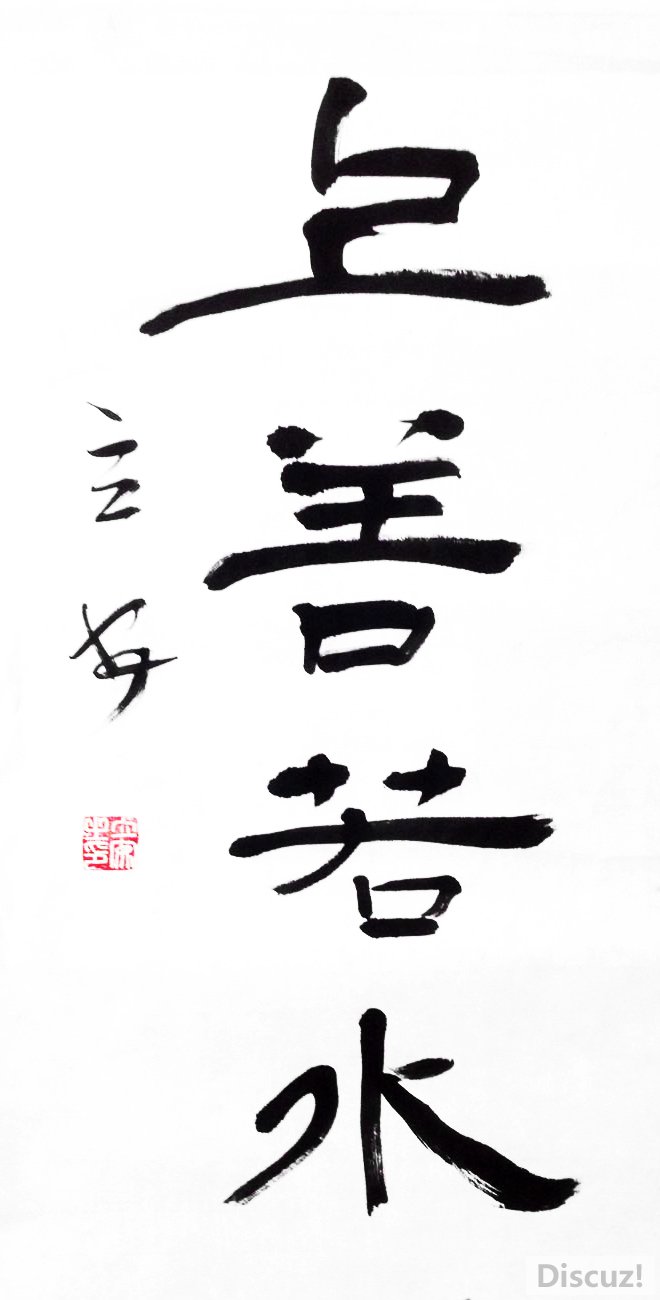 上善若水
立安
Discuz!